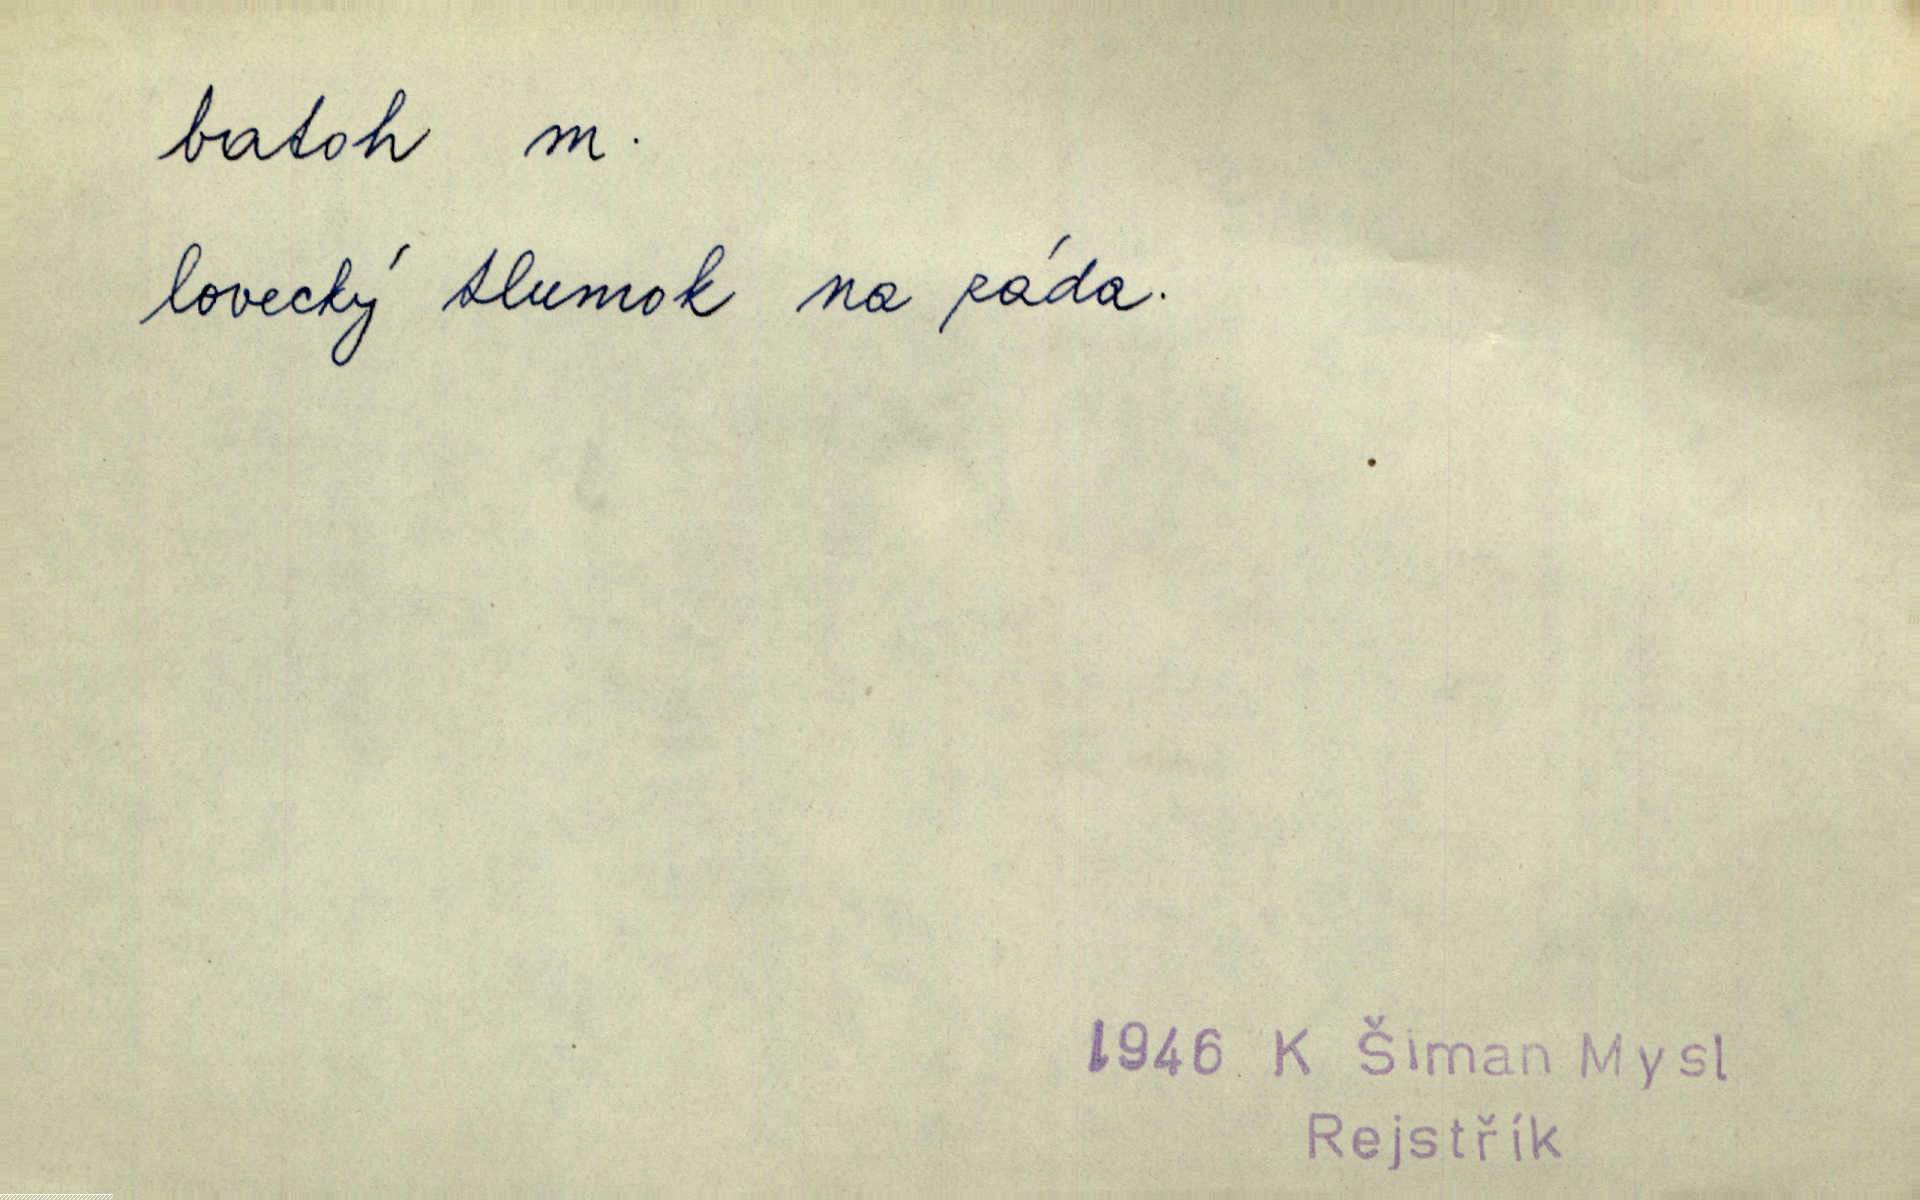 batoh m.
lovecký tlumok na záda.
1946 K Šiman Mysl
Rejstřík